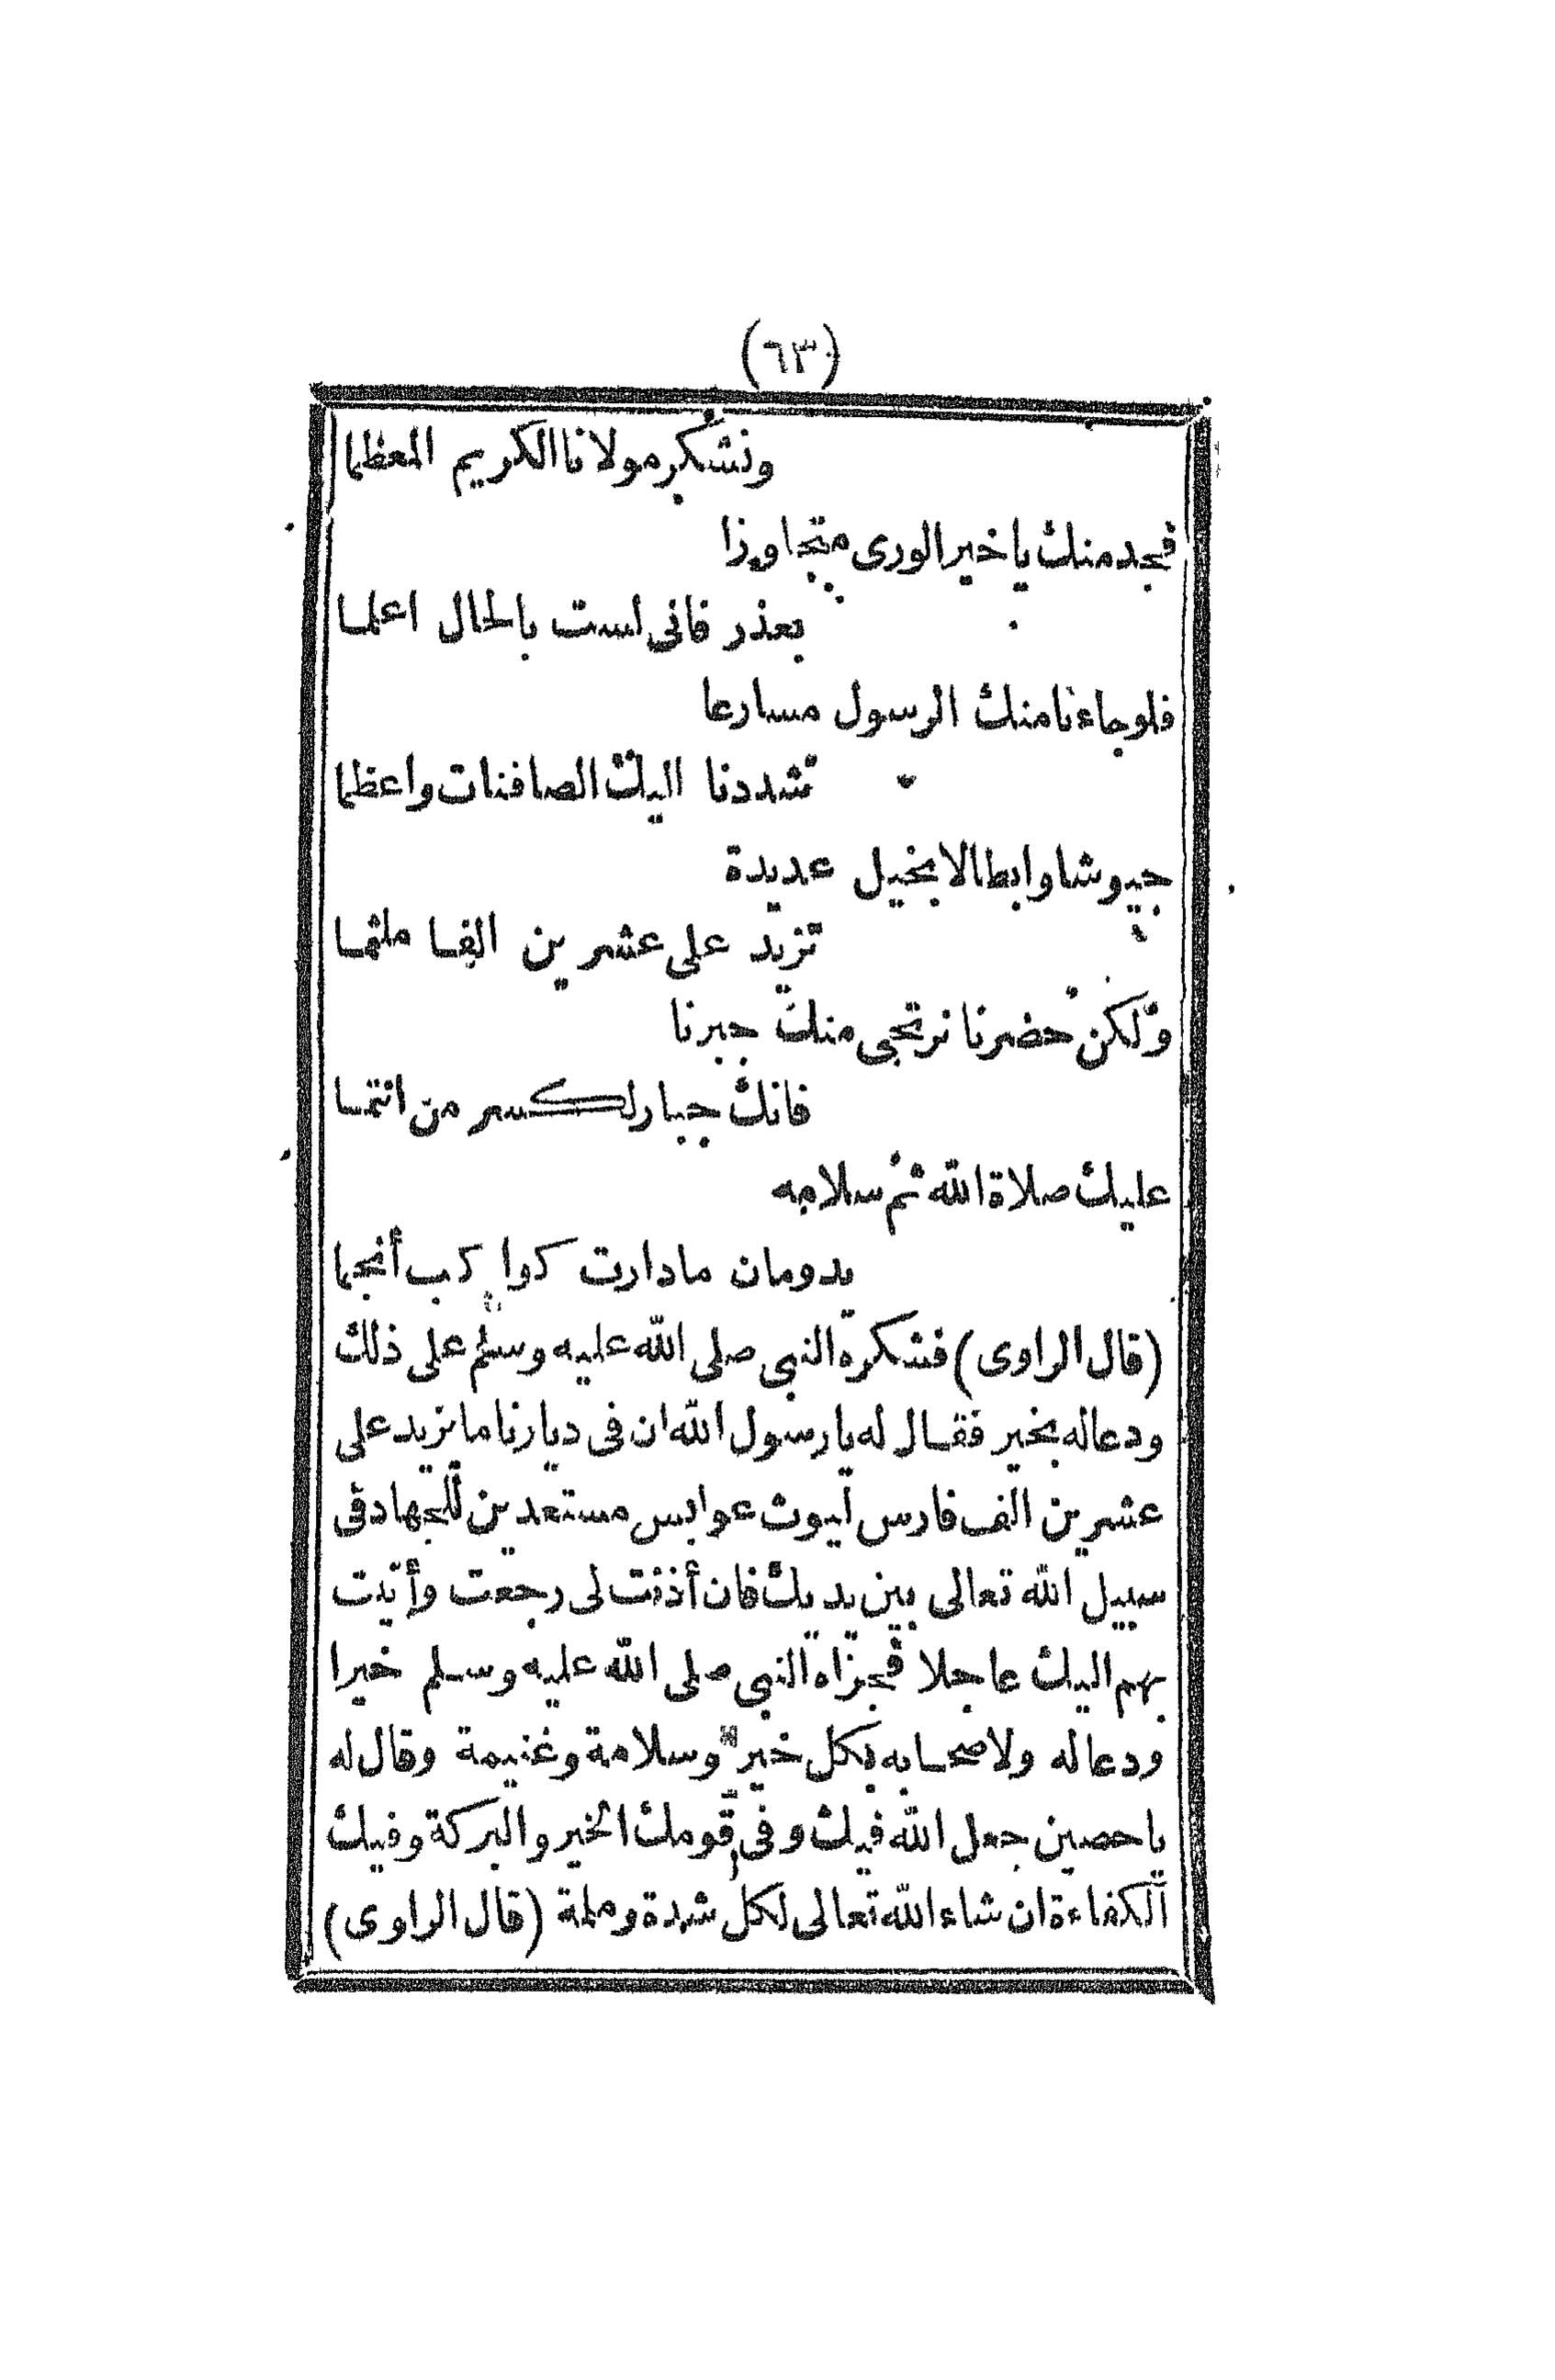 (٦٣)
ونشكر مولانا الكريم المعظما
فجد منك يا خير الورى متجاوزا
بعذر فانى لست بالحال اعلما
فلو جاءنا منك الرسول مسارعا
شددنا اليك الصافنات واعظما
جيوشا وابطالا بخيل عديدة
تزيد على عشرين الفا ملثما
ولكن حضرنا نرتجى منك جبرنا
فانك جبار لكسر من انتما
عليك صلاة الله ثم سلامه
يدومان مادارت كواكب أنجما
(قال الراوى) فشكره النبى صلى الله عليه وسلم على ذلك
ودعاله بخير فقال له يارسول الله ان فى ديارنا ما نزيد على
عشرين الف فارس ليوث عوابس مستعدين للجهاد فى
سبيل الله تعالى بين يديك فان أذنت لى رجعت وأتيت
بهم اليك عاجلا فجزاه النبى صلى الله عليه وسلم خيرا
ودعاله ولاصحابه بكل خير وسلامة وغنيمة وقال له
ياحصين جعل الله فيك وفى قومك الخير والبركة وفيك
الكفاءة ان شاء الله تعالى لكل شدة وملمة (قال الراوى)